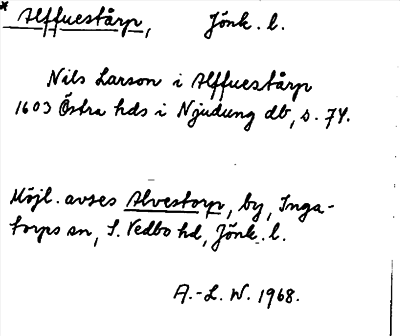 * Alffuestårp, Jönk. l.
Nils Larson i Alffuestårp
1603 Östra hds i Njudung db, s. 74.
Möjl. avses Alvestorp, by, Inga-
torps sn, S. Vedbo hd, Jönk. l.
A.-L. W. 1968.